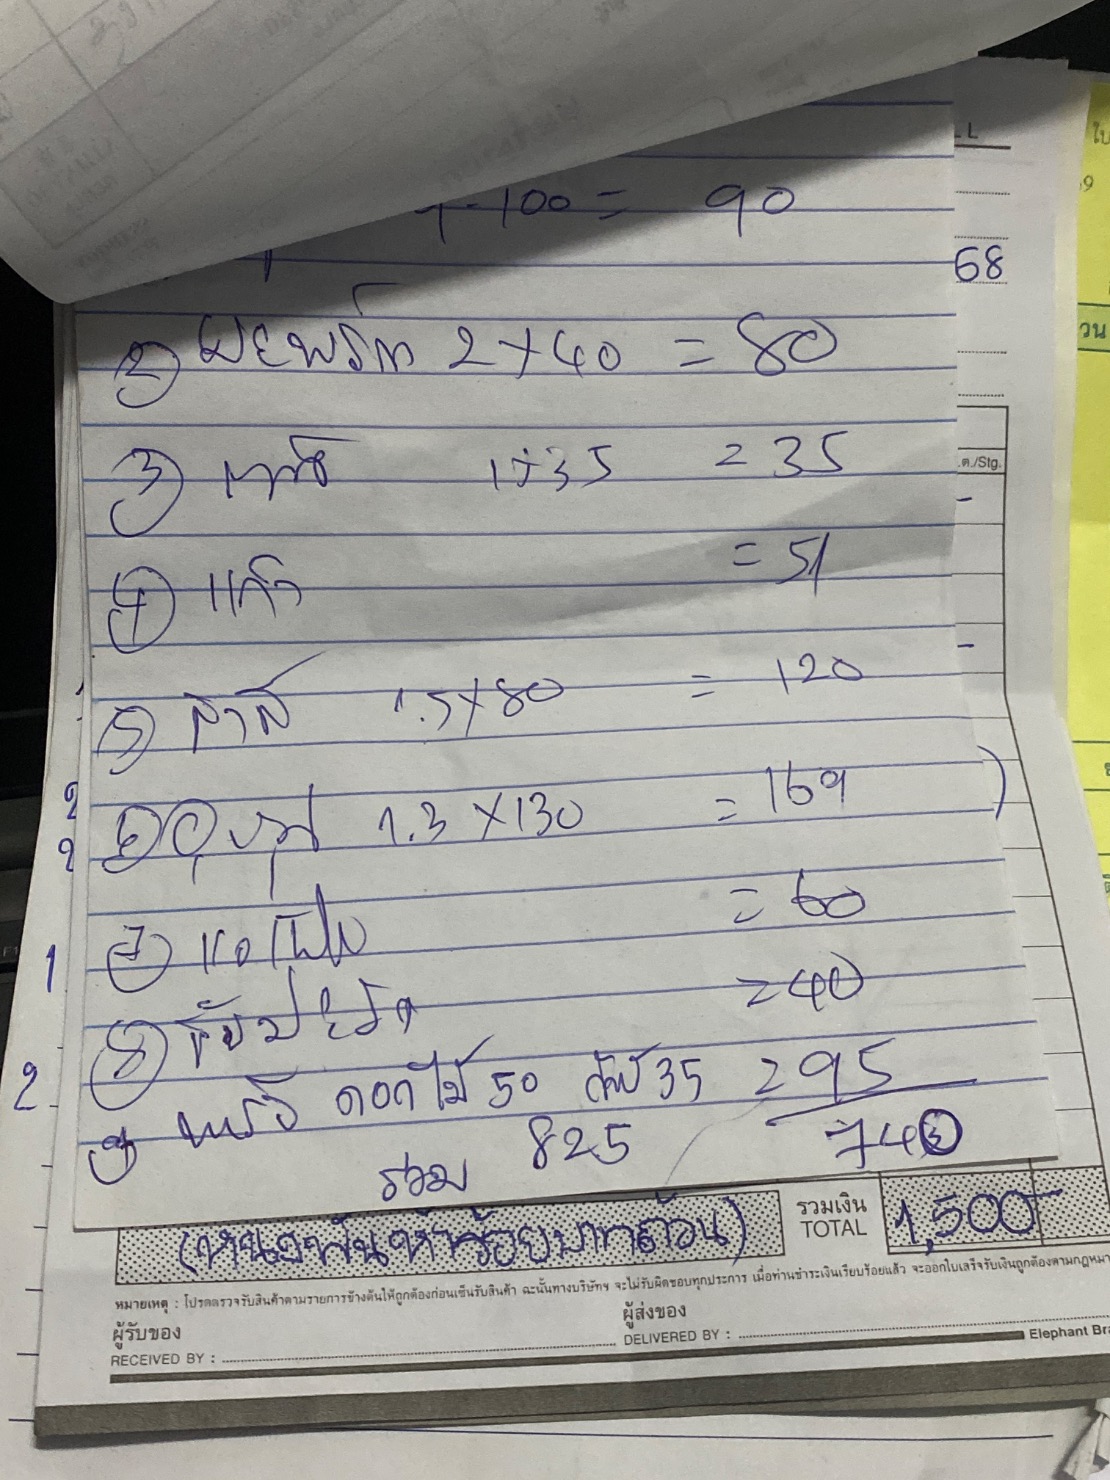 9.100 = 90
68
② มะพร้าว 2 x 40 = 80
③ 1x35 = 35
④ แก้ว = 51
⑤ สาลี่ 1.5 x 80 = 120
⑥ องุ่น 1.3 x 130 = 169
⑦ แอปเปิ้ล = 60
⑧ สับปะรด = 40
⑨ ดอกไม้ 50 35 = 95
รวม 825 740
(หนึ่งพันห้าร้อยบาทถ้วน) รวมเงิน TOTAL 1,500 -
หมายเหตุ : โปรดตรวจรับสินค้าตามรายการข้างต้นให้ถูกต้องก่อนเซ็นรับสินค้า ฉะนั้นทางบริษัทฯ จะไม่รับผิดชอบทุกประการ เมื่อท่านชำระเงินเรียบร้อยแล้ว จะออกใบเสร็จรับเงินถูกต้องตามกฎหมาย
ผู้รับของ ผู้ส่งของ
RECEIVED BY : DELIVERED BY : Elephant Bra